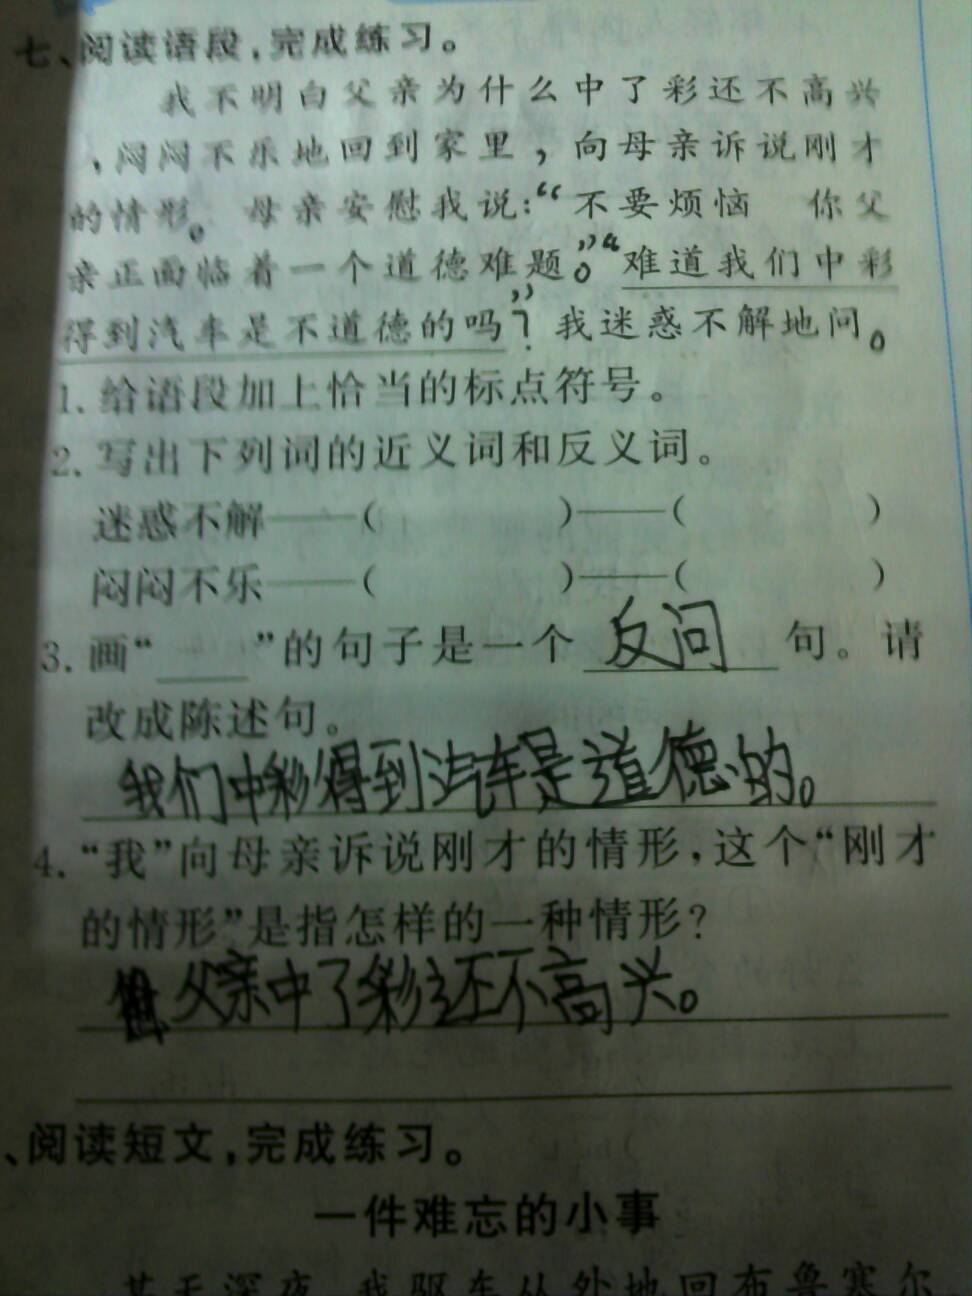 七、阅读语段，完成练习。
我不明白父亲为什么中了彩还不高兴
，闷闷不乐地回到家里，向母亲诉说刚才
的情形。母亲安慰我说：“不要烦恼 你父
亲正面临着一个道德难题。”“难道我们中彩
得到汽车是不道德的吗？”我迷惑不解地问。
1. 给语段加上恰当的标点符号。
2. 写出下列词的近义词和反义词。
迷惑不解——（ ）——（ ）
闷闷不乐——（ ）——（ ）
3. 画“ ”的句子是一个 反问 句。请
改成陈述句。
我们中彩得到汽车是道德的。
4. “我”向母亲诉说刚才的情形，这个“刚才
的情形”是指怎样的一种情形？
父亲中了彩还不高兴。
、阅读短文，完成练习。
一件难忘的小事
某天深夜，我驱车从外地回布鲁塞尔